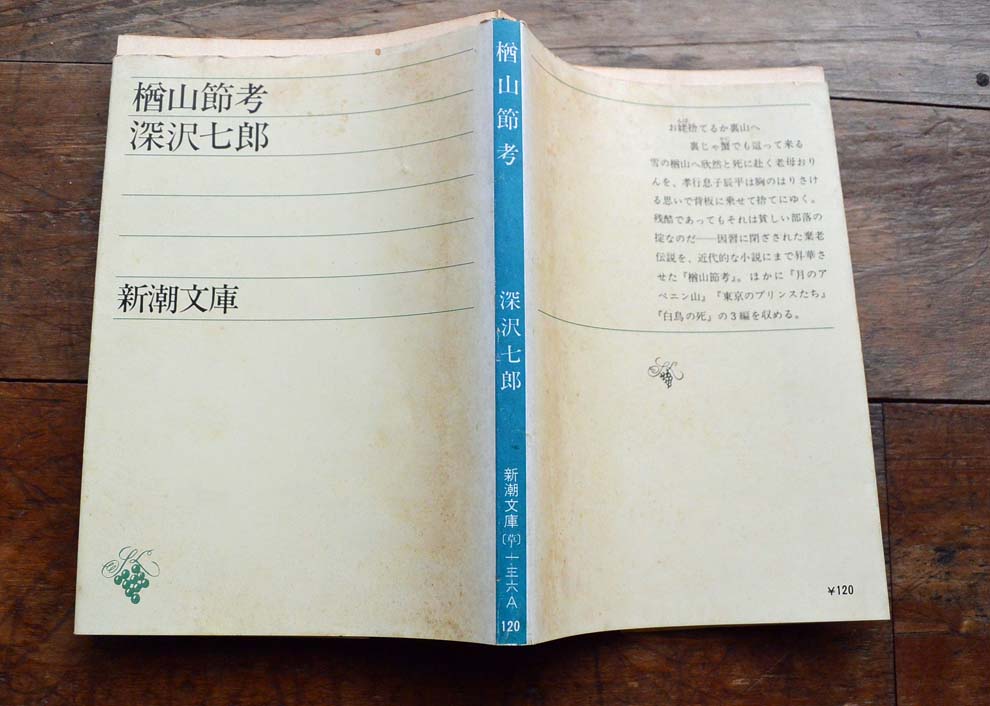 楢山節考
深沢七郎
新潮文庫
楢山節考
深沢七郎
新潮文庫
〔草〕一三六A
120
お姥捨てるか裏山へ
裏じゃ蟹でも這って来る
雪の楢山へ欣然と死に赴く老母おり
んを、孝行息子辰平は胸のはりさけ
る思いで背板に乗せて捨てにゆく。
残酷であってもそれは貧しい部落の
掟なのだ――因習に閉ざされた棄老
伝説を、近代的な小説にまで昇華さ
せた『楢山節考』。ほかに『月のア
ペニン山』『東京のプリンスたち』
『白鳥の死』の3編を収める。
¥120